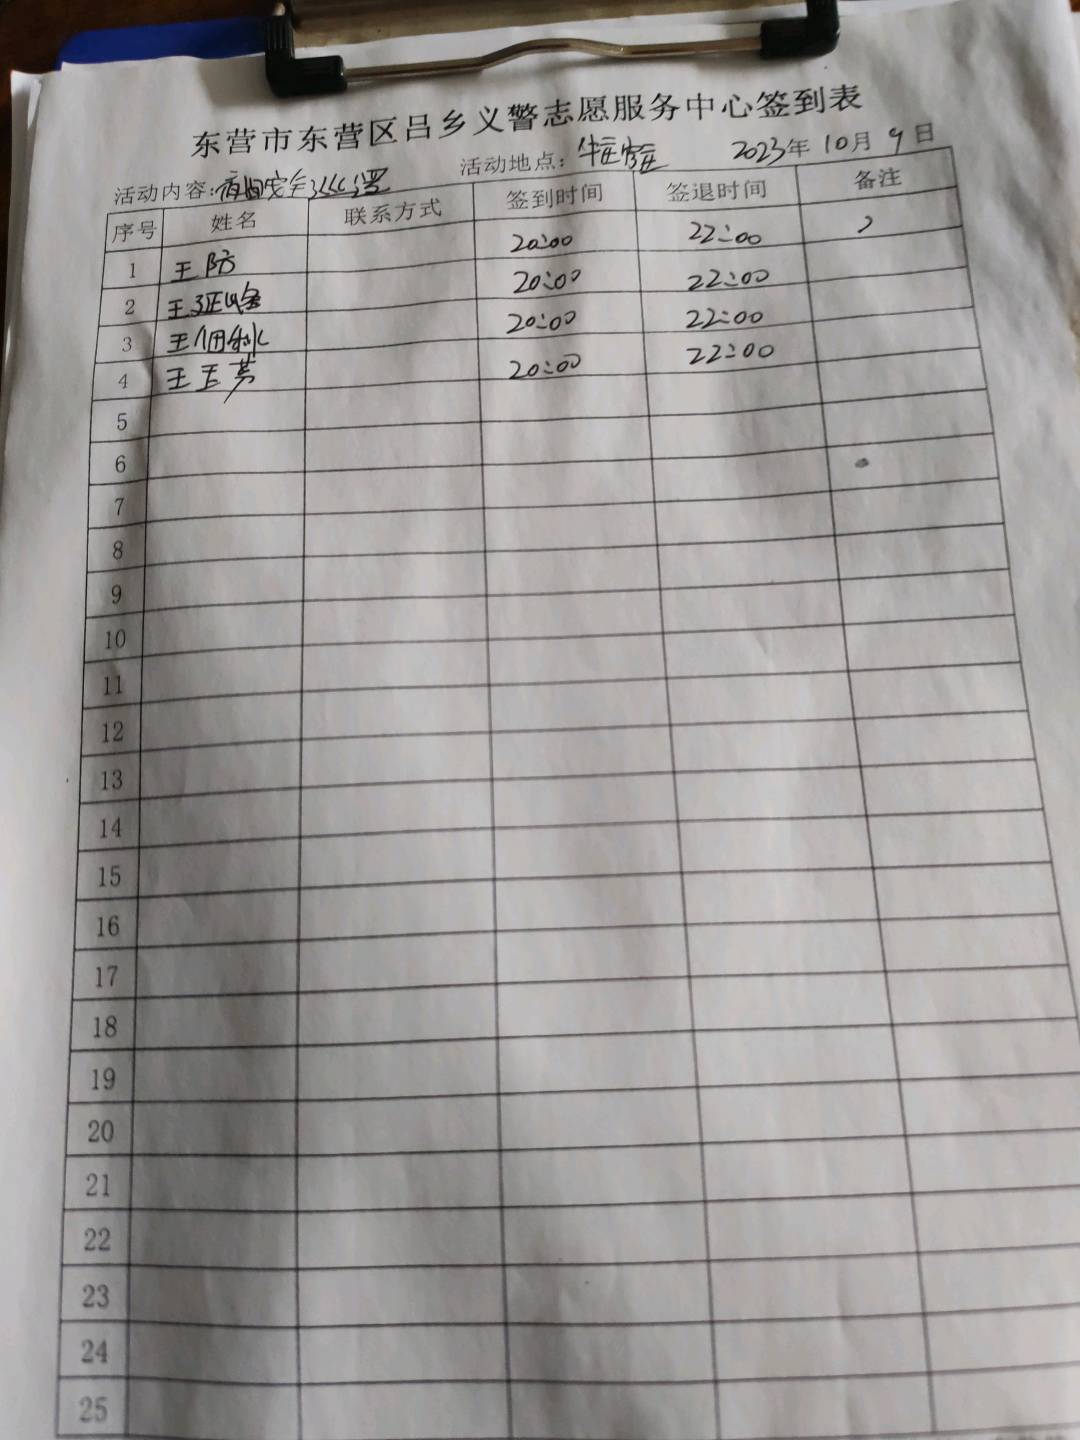 东营市东营区吕乡义警志愿服务中心签到表
活动内容:夜间安全巡逻 活动地点: 2023年 10月 9日
序号 姓名 联系方式 签到时间 签退时间 备注
1 王防 20:00 22:00
2 王延峰 20:00 22:00
3 王佃 20:00 22:00
4 王玉芳 20:00 22:00
5
6
7
8
9
10
11
12
13
14
15
16
17
18
19
20
21
22
23
24
25